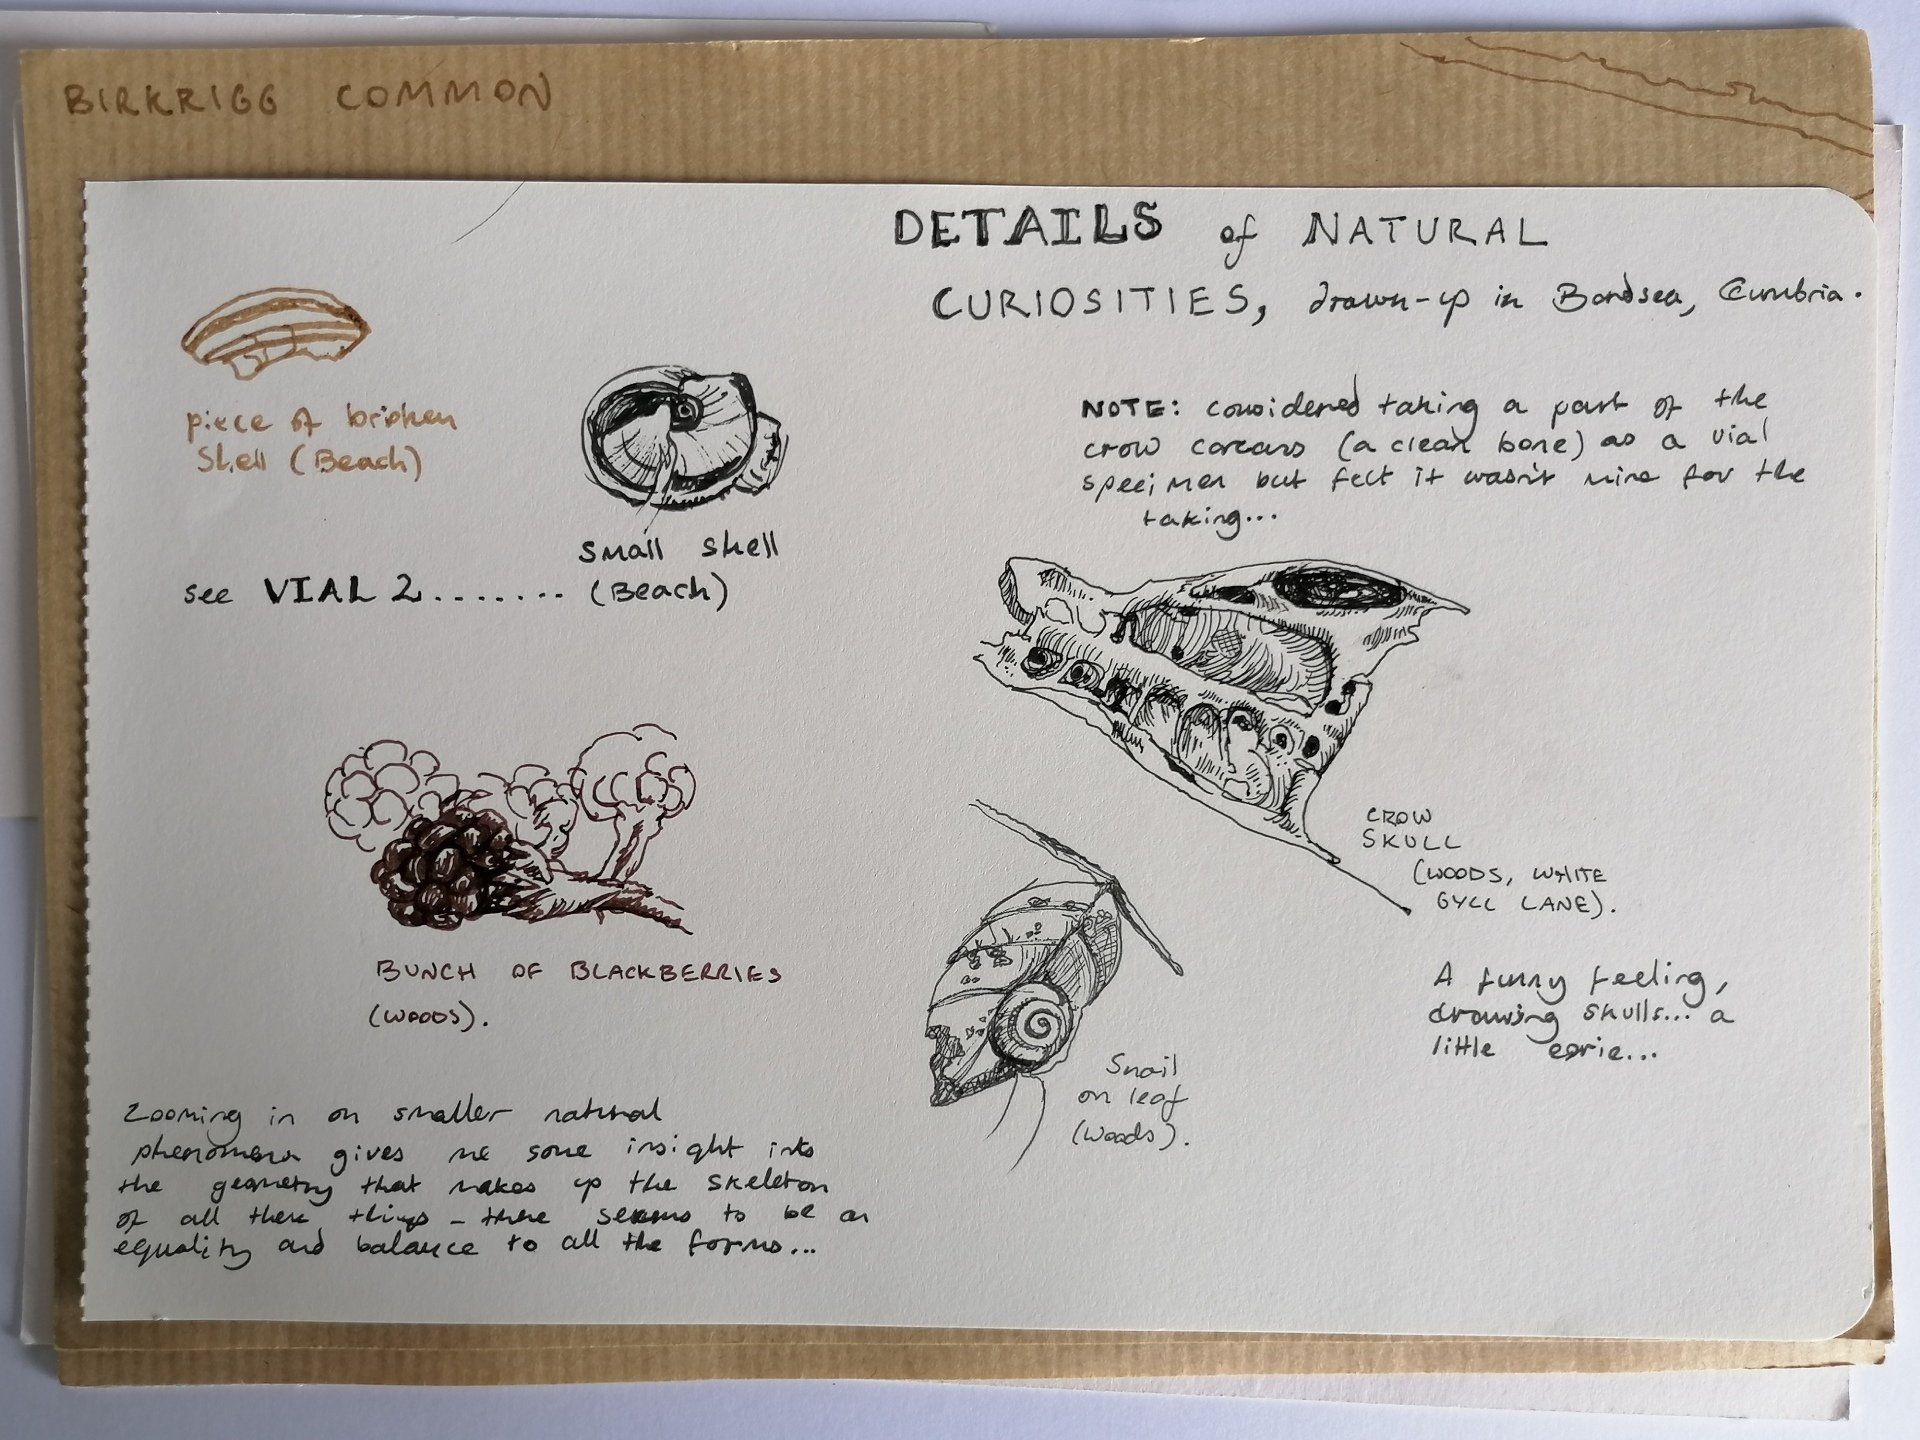 BIRKRIGG COMMON
DETAILS of NATURAL
CURIOSITIES, drawn-up in Bardsea, Cumbria.
piece of broken
Shell (Beach)
small shell
(Beach)
see VIAL 2.......
NOTE: considered taking a part of the
crow carcass (a clean bone) as a vial
specimen but felt it wasn't mine for the
taking...
CROW
SKULL
(WOODS, WHITE
GYLL LANE).
BUNCH OF BLACKBERRIES
(WOODS).
Snail
on leaf
(Woods).
A funny feeling,
drawing skulls... a
little eerie...
Zooming in on smaller natural
phenomena gives me some insight into
the geometry that makes up the skeleton
of all these things - there seems to be an
equality and balance to all the forms...